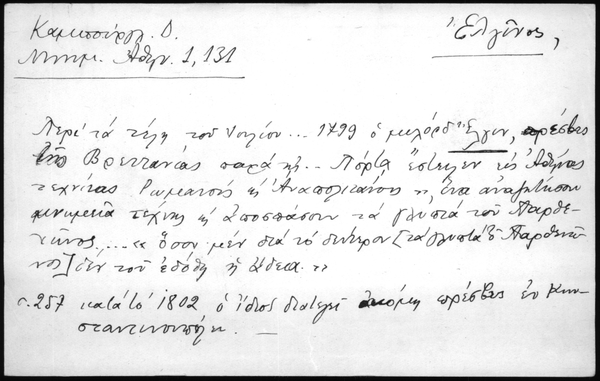 Καμπούργλ. Δ.
Μνημ. Αθην. 1, 131
Ἐλγῖνος,
Περί τά τέλη τοῦ Ἰουλίου... 1799 ὁ μυλόρδ Ἔλγιν, πρέσβυς
τῆς Βρεττανίας παρά τῇ.. Πόρτᾳ ἔστειλεν εἰς Ἀθήνας
τεχνίτας Ρωμαιούς ἤ Ἀναπολιτάνους ἵνα ἀναζητήσουν
μνημεῖα τέχνης ἤ ἀποσπάσουν τά γλυπτά τοῦ Παρθε-
νῶνος... « Ὅσον μέν διά τό δεύτερον [τά γλυπτά τοῦ Παρθενῶ-
νος] δέν τοῦ ἐδόθη ἡ ἄδεια. »
σ. 257 κατά τό 1802 ὁ ἴδιος διατελεῖ ἀκόμη πρέσβυς ἐν Κων-
σταντινουπόλει. —